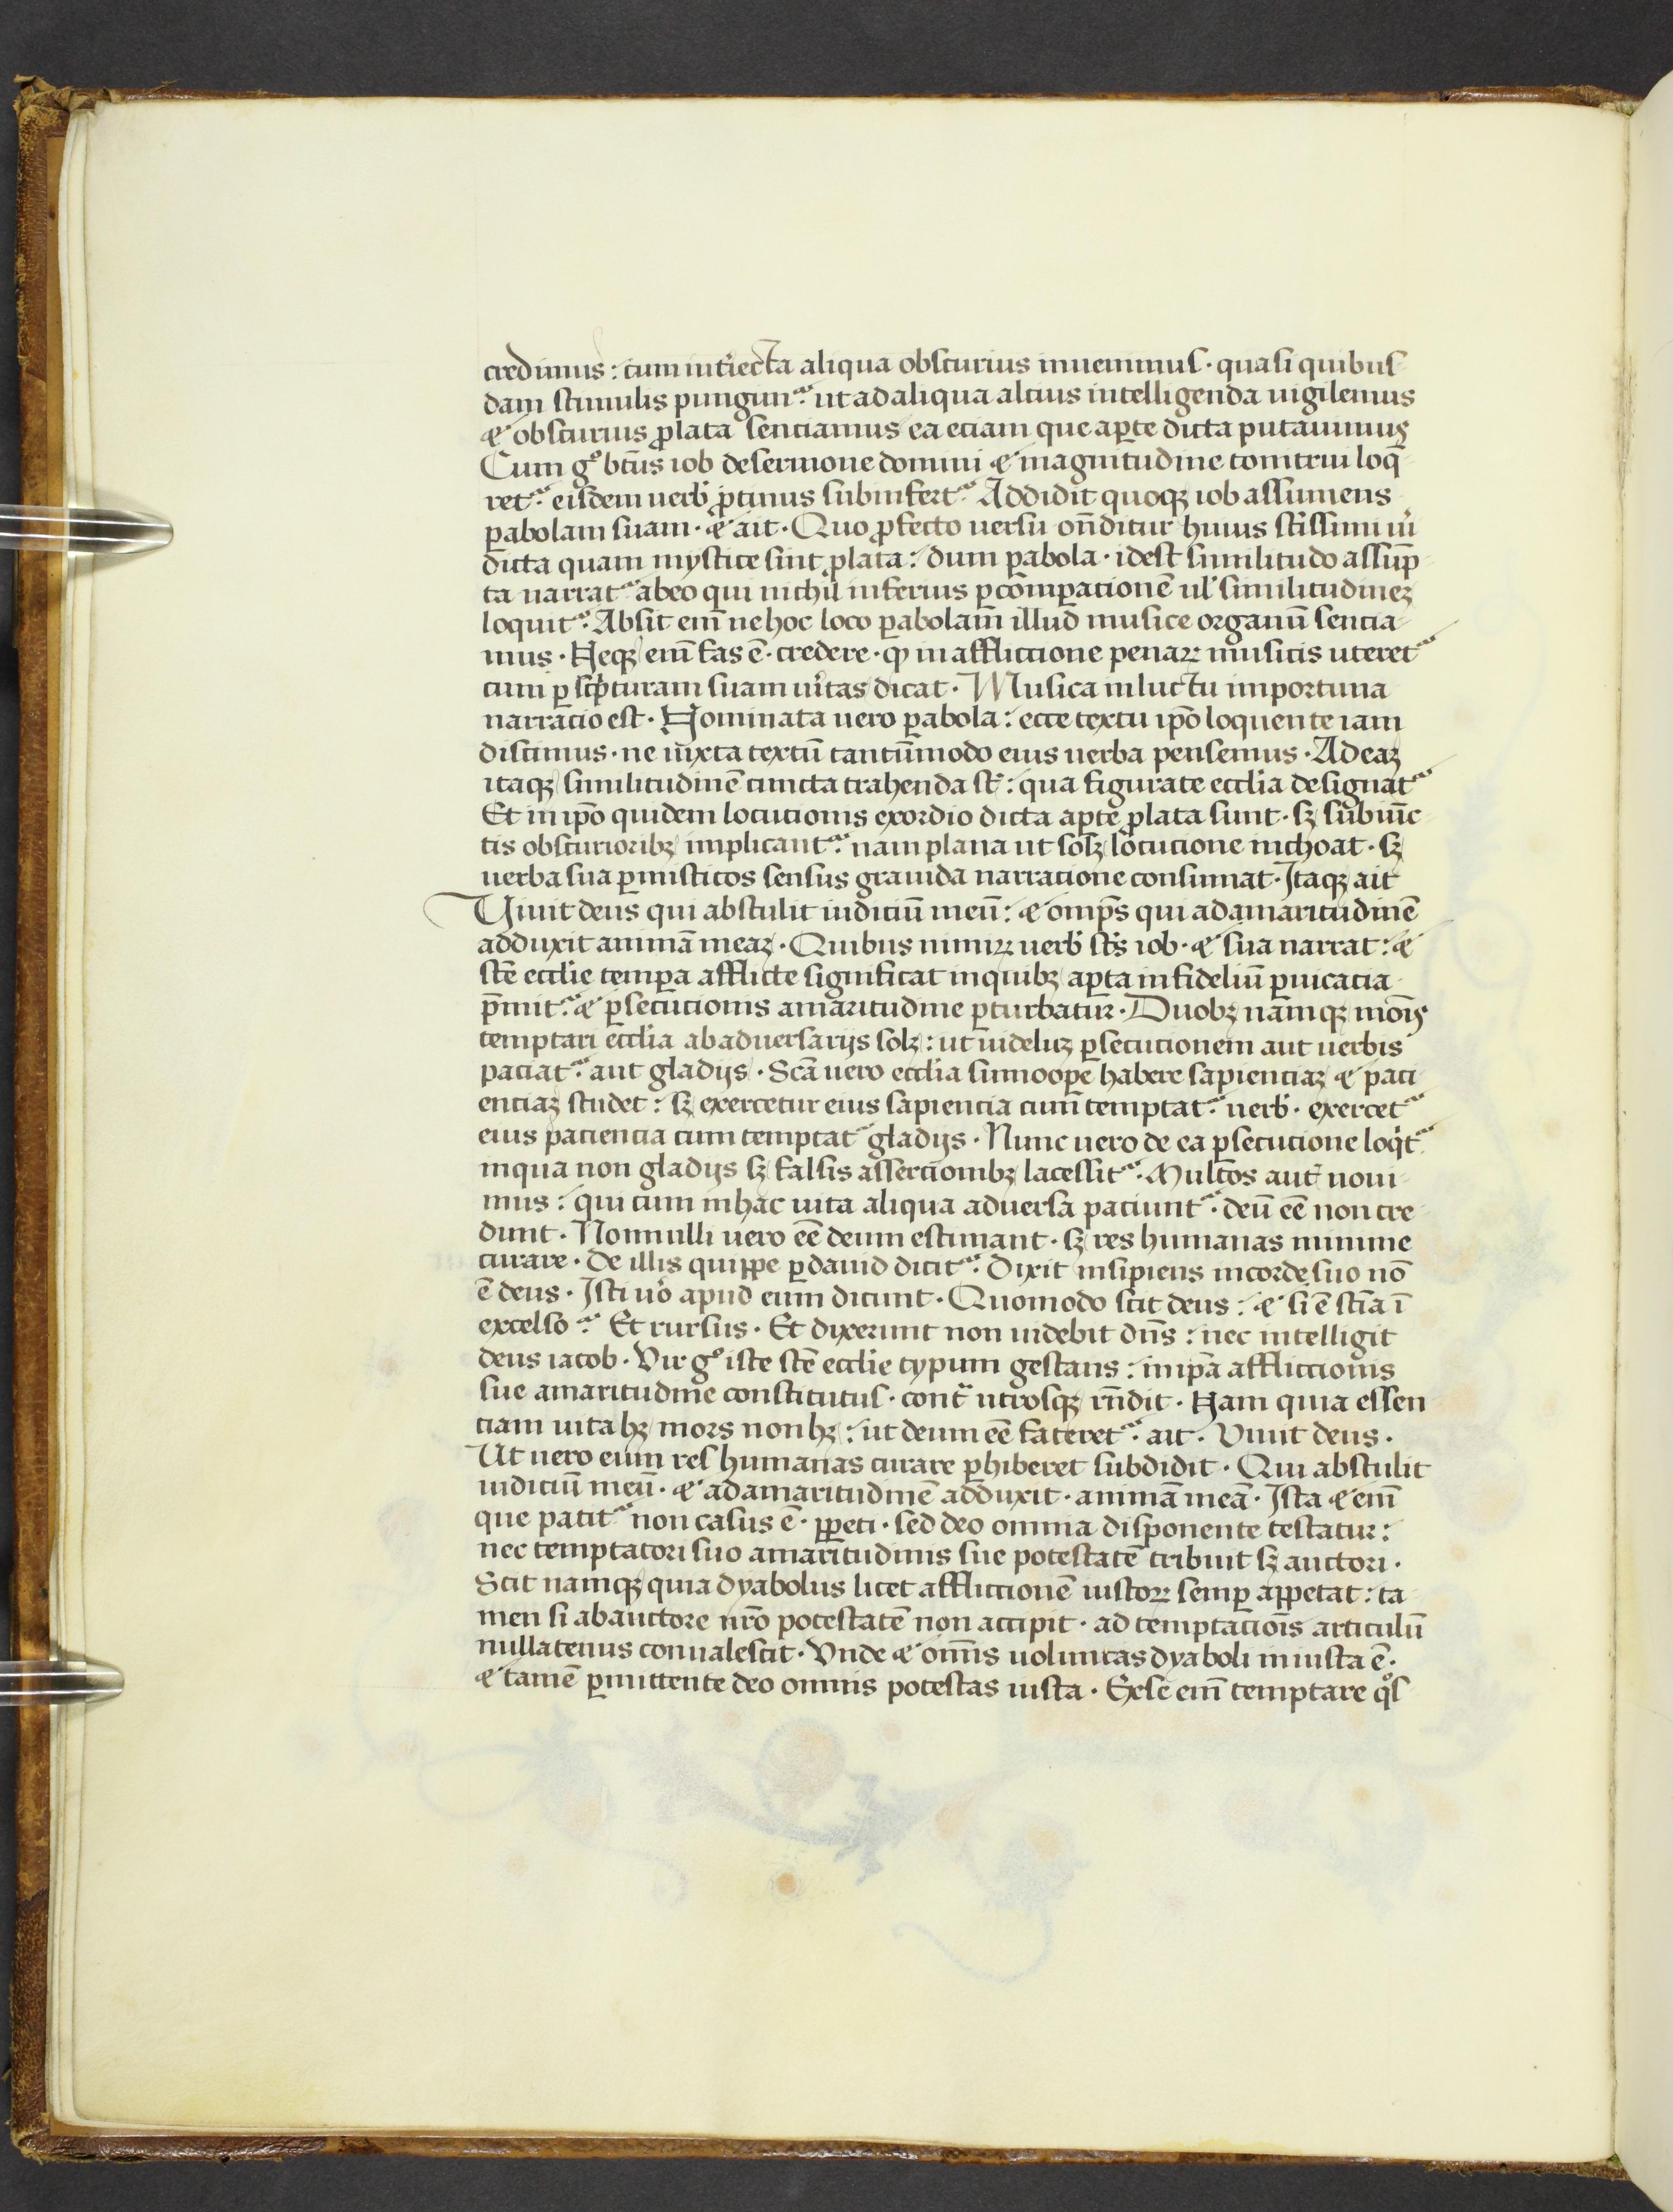 credimus: cum int̾iecta aliqua obscurius inuenimus · quasi quibus
dam stimulis pungim̾ᷓ ut ad aliqua alcius intelligenda uigilemus
⁊ obscurius ꝓlata senciamus ea eciam que aꝑte dicta putauimus
Cum gͦ bt̄us iob de sermone domini ⁊ magnitudine tonitrui loq̄
retᷣ eisdem uerb̾ ꝓtinus subinfertᷣ Addidit quoqꝫ iob assumens
ꝑabolam suam · ⁊ ait · Quo ꝓfecto uersu on̄ditur huius sc̄issimi ui̾
dicta quam mystice sint ꝓlata: dum ꝑabola · idest similitudo assūp
ta narratᷣ ab eo qui nichil inferius ꝑ comꝑacionē ul̾ similitudineꝫ
loquitᷣ Absit em̄ ne hoc loco ꝑabolam̄ illud musice organū sencia
mus · Neqꝫ em̄ fas ē · credere · ꝙ in affliccione penaꝝ musicis uteretᷣ
cum ꝑ sc̾pturam suam ui̾tas dicat · Musica in luctu importuna
narracio est · Nominata uero ꝑabola: ecce textu ip̄o loquente iam
discimus · ne iuxta textū tantūmodo eius uerba pensemus · Ad eaꝫ
itaqꝫ similitudinē cuncta trahenda st̄: qua figurate eccl̾ia designatᷣ
Et in ip̄o quidem locucionis exordio dicta aꝑte ꝓlata sunt · sꝫ subiūc
tis obscurioribꝫ implicantᷣ nam plana ut solꝫ locucione inchoat · sꝫ
uerba sua ꝑ misticos sensus grauida narracione consumat · Itaqꝫ ait
Viuit deus qui abstulit iudiciū meū: ⁊ omp̄s qui ad amaritudinē
adduxit animā meaꝫ · Quibus nimiꝝ uerb̾ sc̄s iob · ⁊ sua narrat: ⁊
sc̄e eccl̾ie temꝑa afflicte significat in quibꝫ aꝑta infideliū ꝑuicacia
p̄mitᷣ ⁊ ꝑsecucionis amaritudine ꝑturbatur · Duobꝫ namqꝫ mōis
temptari eccl̾ia ab aduersarijs solꝫ: ut uideliꝫ ꝑsecucionem aut uerbis
paciatᷣ aut gladijs · Sc̄a uero eccl̾ia sumooꝑe habere sapienciaꝫ ⁊ paci
enciaꝫ studet: sꝫ exercetur eius sapiencia cum temptatᷣ uerb̾ · exercetᷣ
eius paciencia cum temptatᷣ gladijs · Nunc uero de ea ꝑsecucione loqͥtᷣ
in qua non gladijs sꝫ falsis assercionibꝫ lacessitᷣ · Multos aut̄ noui
mus: qui cum in hac uita aliqua aduersa paciuntᷣ · deū ēē non cre
dunt · Nonnulli uero ēē deum estimant · sꝫ res humanas minime
curare · De illis quippe ꝑ dauid dicitᷣ Dixit insipiens in corde suo nō
ē deus · Isti uo̾ apud eum dicunt · Quomodo scit deus: ⁊ si ē sc̄ia ī
excelso ᷣ Et rursus · Et dixerunt non uidebit dn̄s: nec intelligit
deus iacob · Vir gͦ iste sc̄e eccl̾ie typum gestans: in ip̄a affliccionis
sue amaritudine constitutus · contᷓ utrosqꝫ rn̄dit · Nam quia essen
ciam uita hꝫ mors non hꝫ: ut deum ēē fateretᷣ ait · Viuit deus ·
Ut uero eum res humanas curare ꝑhiberet subdidit · Qui abstulit
iudiciū meū · ⁊ ad amaritudinē adduxit · animā meā · Ista ⁊ em̄
que patitᷣ non casus ē · ꝑpeti · sed deo omnia disponente testatur:
nec temptatori suo amaritudinis sue potestatē tribuit sꝫ auctori ·
Scit namqꝫ quia dyabolus licet affliccionē iustoꝝ semꝑ appetat: ta
men si ab auctore nr̄o potestatē non accipit · ad temptaciōis articulū
nullatenus conualescit · Vnde ⁊ om̄is uoluntas dyaboli iniusta ē ·
⁊ tamē ꝑmittente deo omnis potestas iusta · Ex se em̄ temptare qͦs